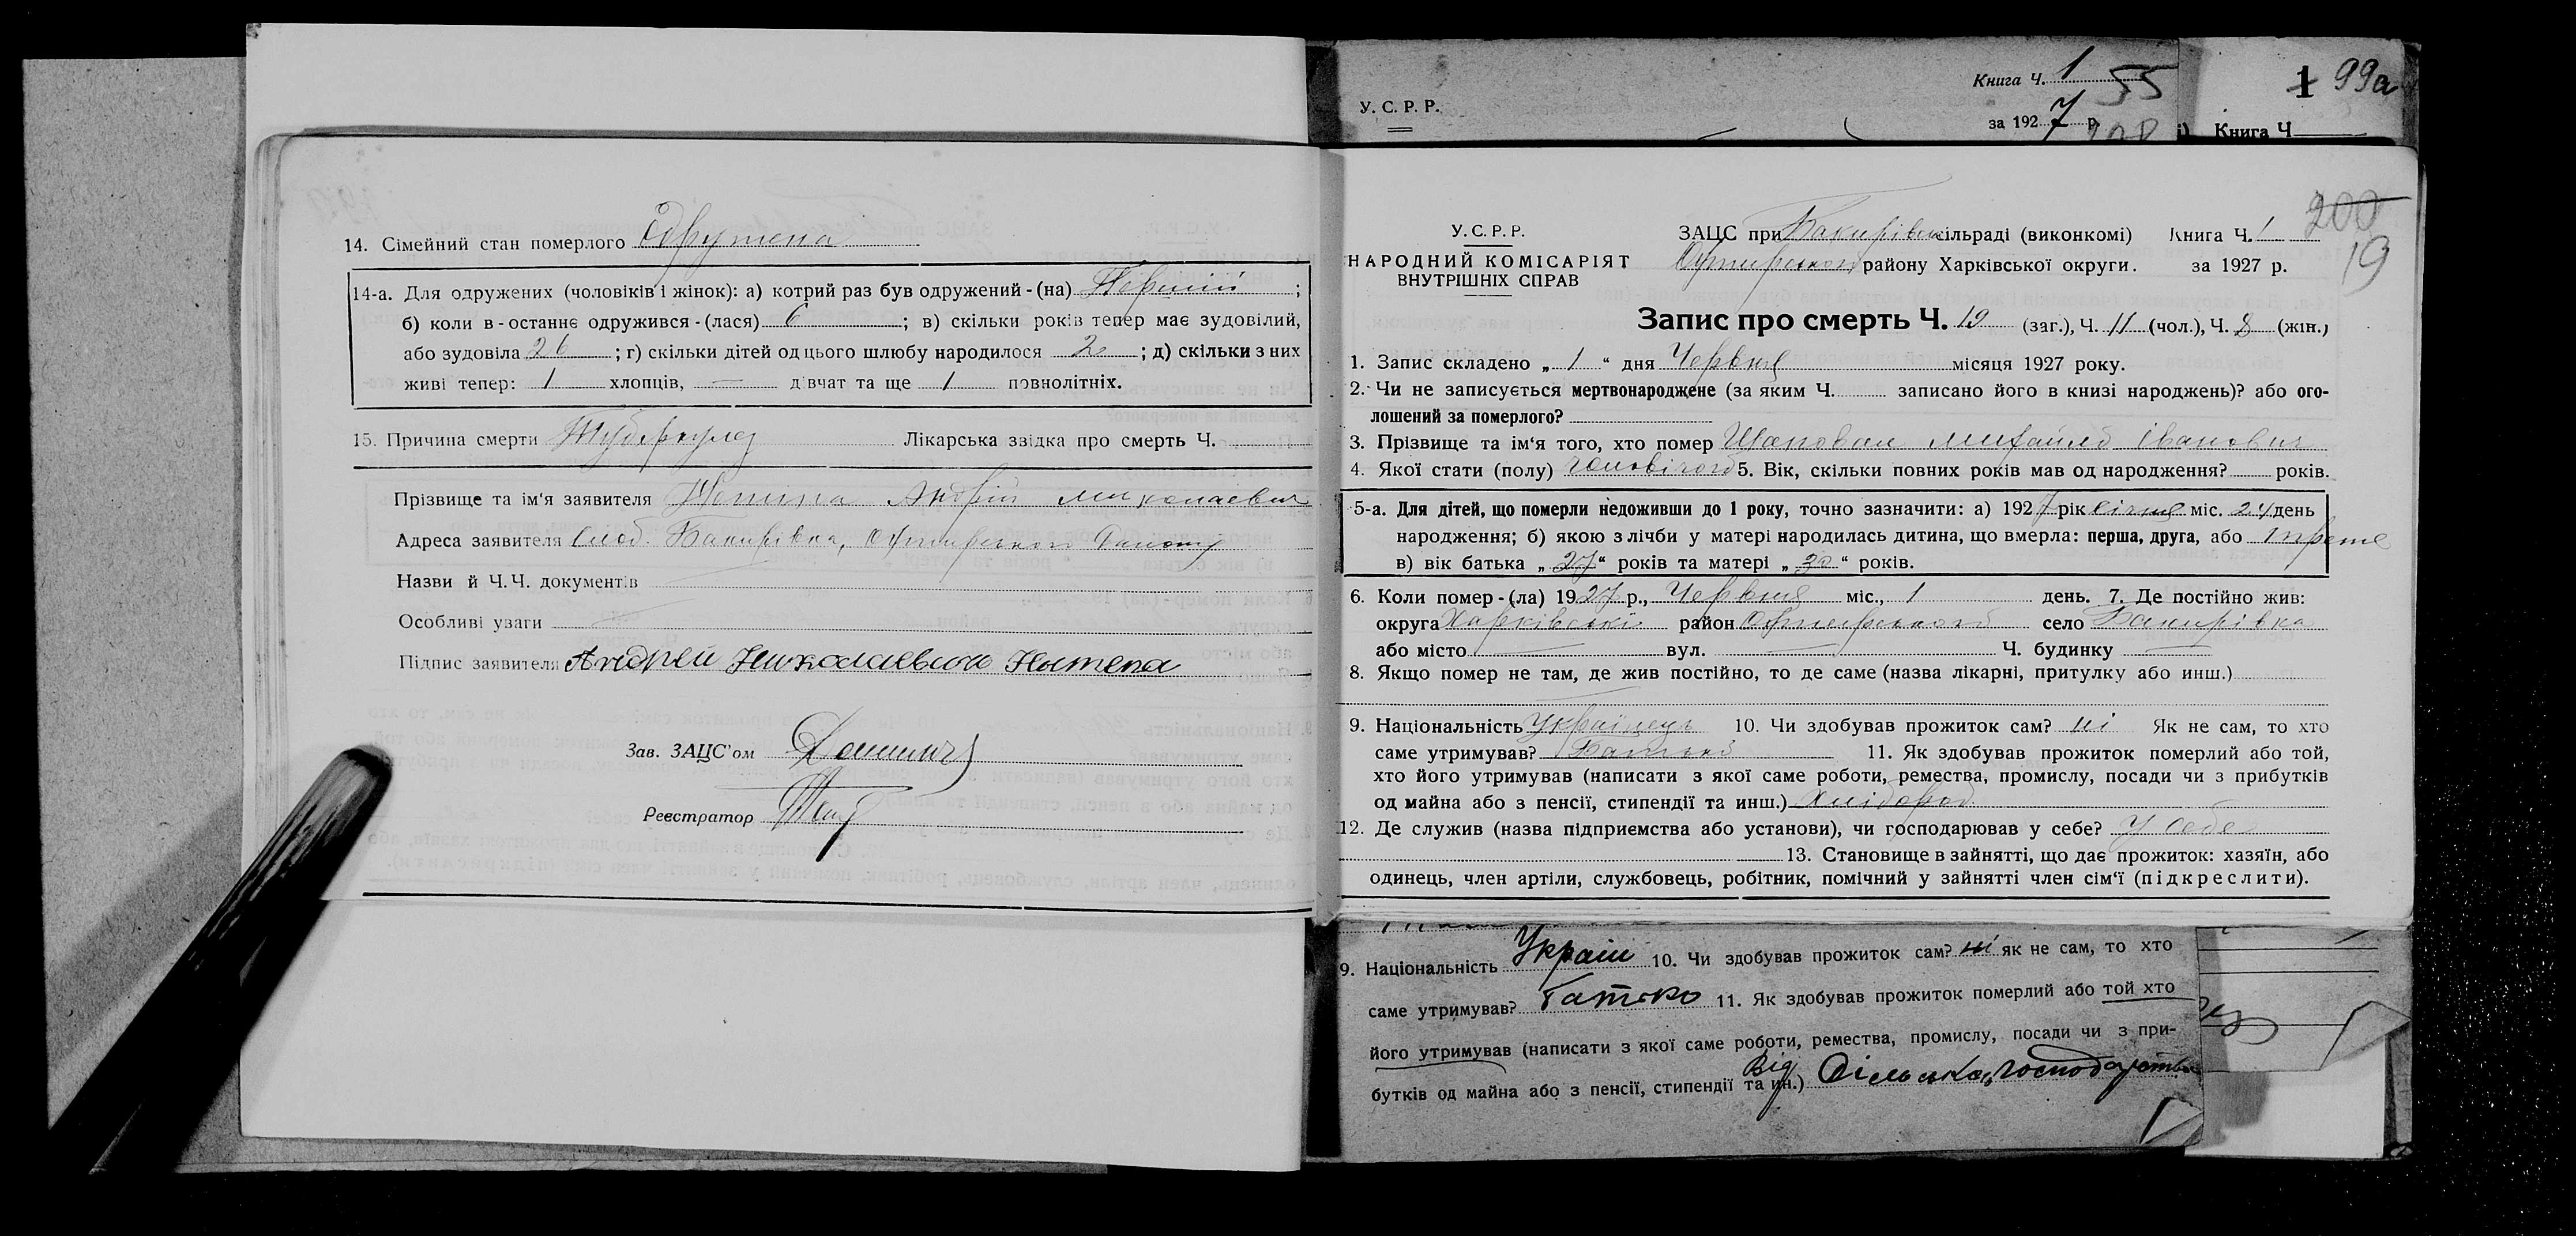 14. Сімейний стан померлого Одружена
14-а. Для одружених (чоловіків і жінок): а) котрий раз був одружений-(на) Перший ;
б) коли в-останнє одружився-(лася) 6 ; в) скільки років тепер має зудовілий,
або зудовіла 26 ; г) скільки дітей од цього шлюбу народилося 2 ; д) скільки з них
живі тепер: 1 хлопців, — дівчат та ще 1 повнолітніх.
15. Причина смерти Туберкулез Лікарська звідка про смерть Ч.
Прізвище та ім'я заявителя Андрій Миколаевич
Адреса заявителя Слоб. Бакирівка, Охтирського Району
Назви й Ч.Ч. документів
Особливі уваги
Підпис заявителя Андрей Николаевич
Зав. ЗАЦС'ом
Реєстратор
У. С. Р. Р.
Книга Ч. 1 55
за 1927 р.
1 99а
Книга Ч
У.С.Р.Р.
НАРОДНИЙ КОМІСАРІЯТ
ВНУТРІШНІХ СПРАВ
ЗАЦС при Бакирівск сільраді (виконкомі) Книга Ч. 1
200
Охтирського району Харківської округи. за 1927 р.
19
Запис про смерть Ч. 19 (заг.), Ч. 11 (чол.), Ч. 8 (жін.)
1. Запис складено „ 1 “ дня Червня місяця 1927 року.
2. Чи не записується мертвонароджене (за яким Ч. записано його в книзі народжень)? або ого-
лошений за померлого?
3. Прізвище та ім'я того, хто помер Шаповал Михайло Іванович
4. Якої стати (полу) чоловічого 5. Вік, скільки повних років мав од народження? років.
5-а. Для дітей, що померли недоживши до 1 року, точно зазначити: а) 1927 рік січня міс. 24 день
народження; б) якою з лічби у матері народилась дитина, що вмерла: перша, друга, або
в) вік батька „ 27 “ років та матері „ 30 “ років.
6. Коли помер-(ла) 1927 р., Червня міс., 1 день. 7. Де постійно жив:
округа Харківської район Охтирського село Бакирівка
або місто — вул. — Ч. будинку —
8. Якщо помер не там, де жив постійно, то де саме (назва лікарні, притулку або инш.)
9. Національність Українець 10. Чи здобував прожиток сам? ні Як не сам, то хто
саме утримував? Батько 11. Як здобував прожиток померлий або той,
хто його утримував (написати з якої саме роботи, ремества, промислу, посади чи з прибутків
од майна або з пенсії, стипендії та инш.) Хлібороб
12. Де служив (назва підприємства або установи), чи господарював у себе? У себе
13. Становище в зайнятті, що дає прожиток: хазяїн, або
одинець, член артіли, службовець, робітник, помічний у зайнятті член сім'ї (підкреслити).
9. Національність Україн 10. Чи здобував прожиток сам? ні як не сам, то хто
саме утримував? Батько 11. Як здобував прожиток померлий або той хто
його утримував (написати з якої саме роботи, ремества, промислу, посади чи з при-
бутків од майна або з пенсії, стипендії та ин.) Від сільськ. господарства